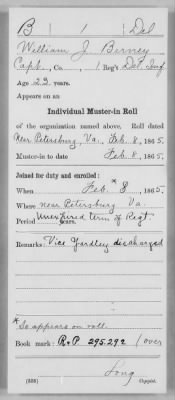 B 1 Del
William J Birney
Capt., Co. , 1 Reg't Del. Inf.
Age 23 years.
Appears on an
Individual Muster-in Roll
of the organization named above. Roll dated
Near Petersburg, Va., Feb. 8, 1865.
Muster-in to date Feb. 8, 1865.
Joined for duty and enrolled:
When Feb. * 8, 1865.
Where near Petersburg Va.
Period Unexpired term of Regt. years.
Remarks: Vice Yardley discharged
*So appears on roll.
Book mark: R&P 295,292 / over
Long
(338) Copyist.